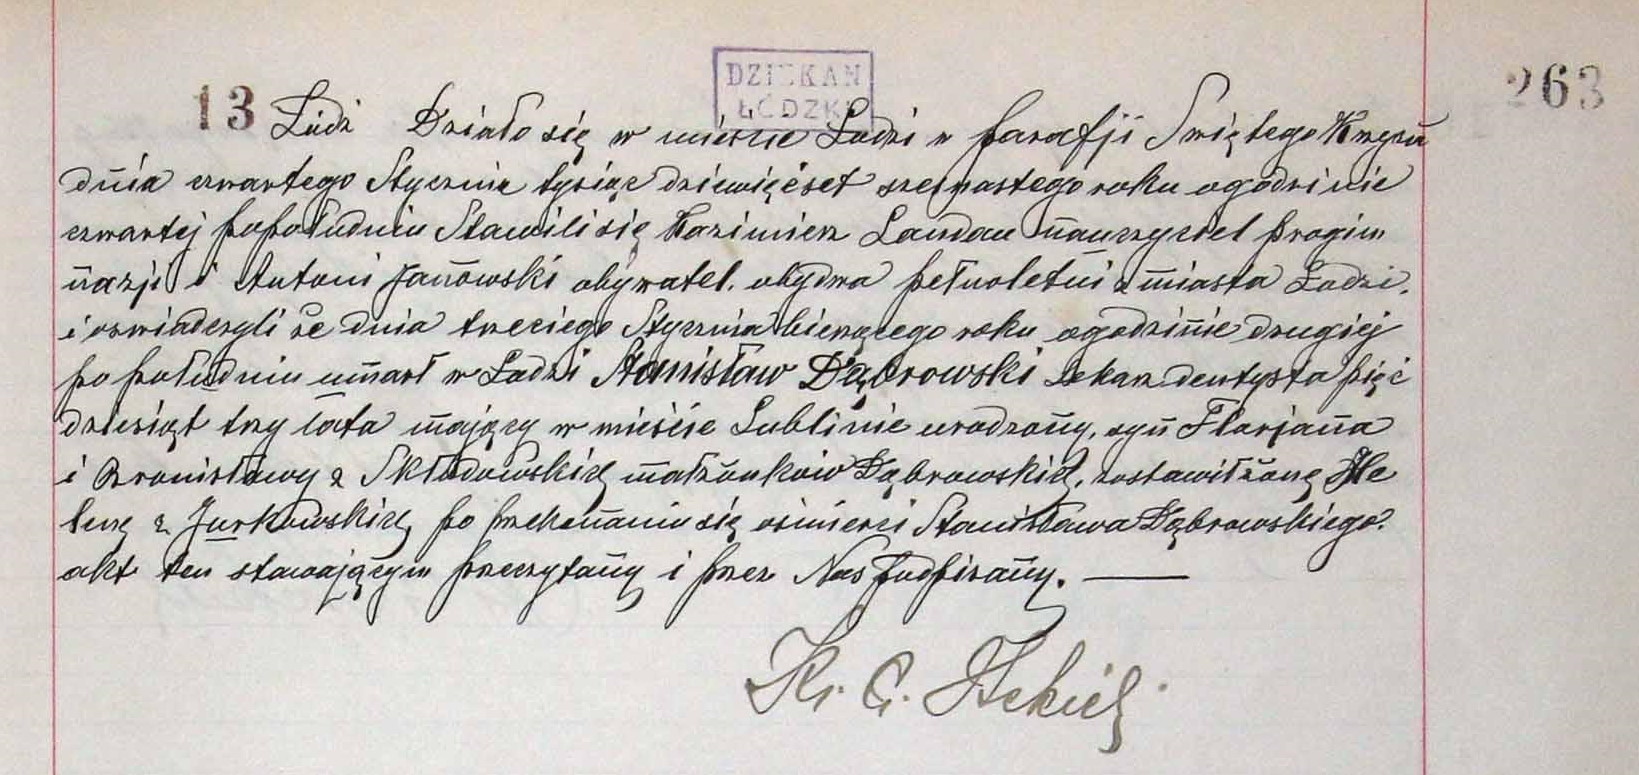 DZIEKAN
ŁÓDZKI
263
13 Łódź Działo się w mieście Łodzi w parafji Świętego Krzyża
dnia czwartego Stycznia tysiąc dziewięćset szesnastego roku o godzinie
czwartej po południu Stawili się Kazimierz Landau nauczyciel progim
nazji i Antoni Janowski obywatel. obydwa pełnoletni z miasta Łodzi.
i oświadczyli że dnia trzeciego Stycznia bieżącego roku o godzinie drugiej
po południu umarł w Łodzi Stanisław Dąbrowski Lekarz dentysta pięć
dziesiąt trzy lata mający w mieście Lublinie urodzony, syn Florjana
i Bronisławy z Skłodowskich małżonków Dąbrowskich, zostawił żonę He
lenę z Jurkowskich, po przekonaniu się o śmierci Stanisława Dąbrowskiego.
akt ten stawającym przeczytany i przez Nas podpisany. —